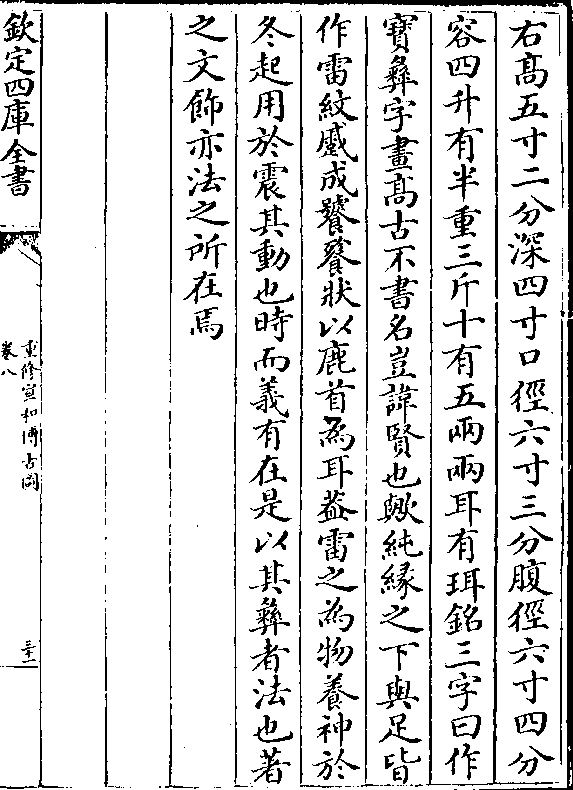 右髙五寸二分深四寸口徑六寸三分腹徑六寸四分
容四升有半重三斤十有五兩兩耳有珥銘三字曰作
寶彝字畫髙古不書名豈諱賢也歟純緣之下與足皆
作雷紋蹙成饕餮狀以鹿首為耳葢雷之為物養神於
冬起用於震其動也時而義有在是以其彝者法也著
之文飾亦法之所在焉
欽定四庫全書
重修宣和博古圖
卷八
三十一